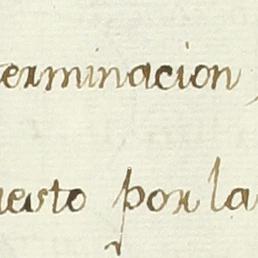 erminacion
uesto por la